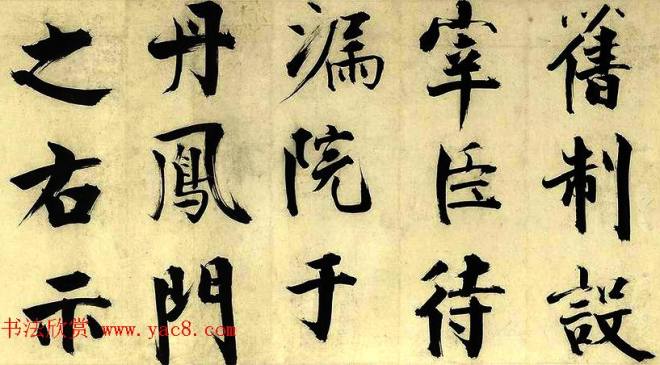 舊制設
宰臣待
漏院于
丹鳳門
之右示
书法欣赏 www.yac8.com